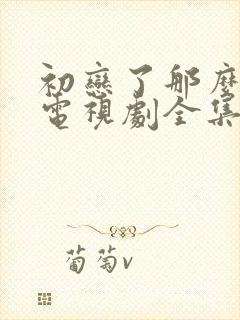 初戀了那麽
電視劇全集
葡萄v